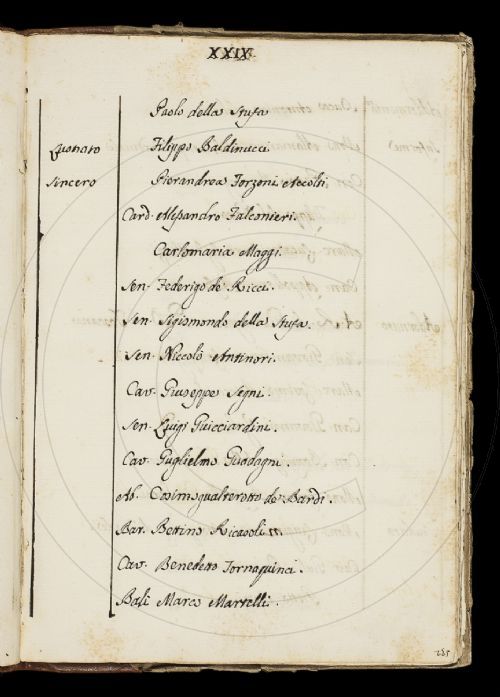 XXIX.
Paolo della Stufa
Lustrato Filippo Baldinucci
Sincero Pierandrea Forzoni Accolti
Card. Alessandro Falconieri.
Carlomaria Maggi.
Sen. Federigo de Ricci.
Sen. Sigismondo della Stufa.
Sen. Niccolò Antinori.
Cav. Giuseppe Segni.
Sen. Luigi Guicciardini.
Cav. Guglielmo Guadagni.
Ab. Cosimo Gualterotto de Bardi.
Bar. Bettino Ricasoli
Cav. Benedetto Tornaquinci.
Balì Marco Martelli.
285